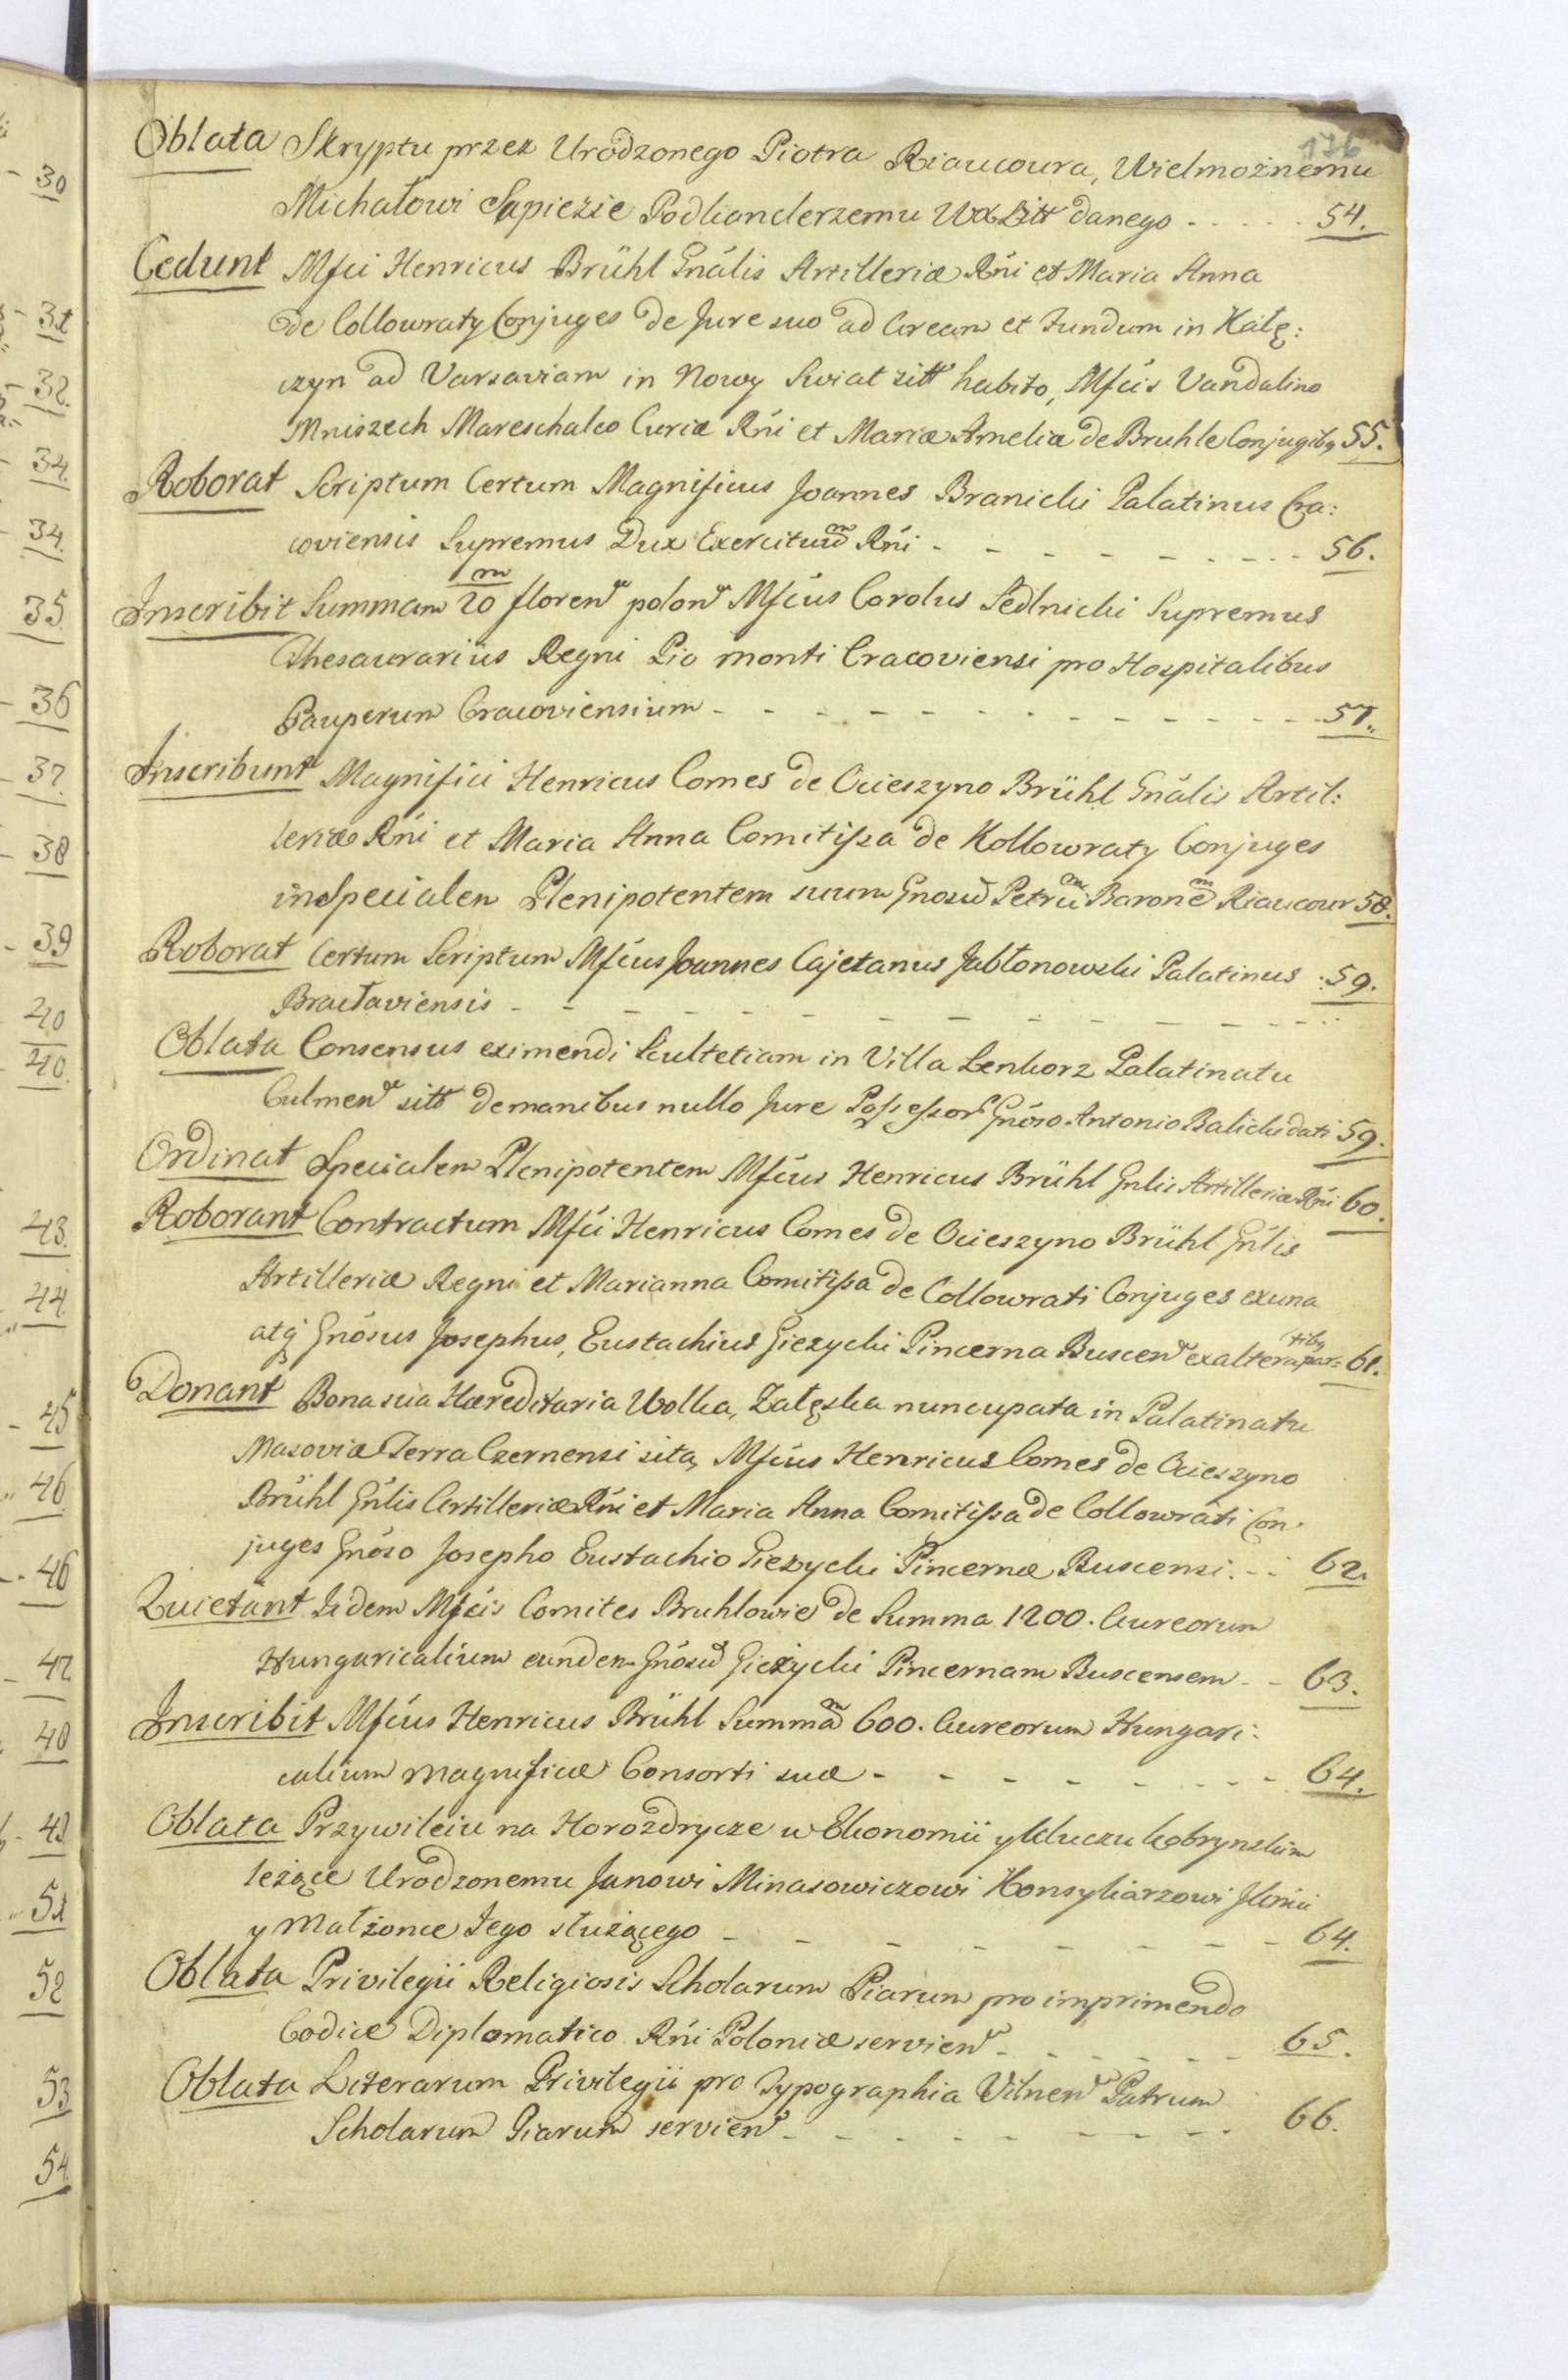 176
Oblata Skryptu przez Urodzonego Piotra Riaucoura, Wielmożnemu
Michałowi Sapiezie Podkanclerzemu WXLitt danego - - - - - 54.
Cedunt Mfci Henricus Brühl Gnâlis Artilleriæ Rńi et Maria Anna
de Collowraty Conjuges de Jure suo ad Aream et Fundum in Kałę:
czyn ad Varsaviam in Nowy Swiat sitt habito, Mfcis Vandalino
Mniszech Mareschalco Curiæ Rńi et Mariæ Ameliæ de Bruhle Conjugibg 55.
Roborat Scriptum Certum Magnificus Joannes Branicki Palatinus Cra:
coviensis Supremus Dux Exercituum Rńi - - - - - - - - 56.
Inscribit Summam 20 m floren polon Mfcus Carolus Sedlnicki Supremus
Thesaurariús Regni Pio monti Cracoviensi pro Hospitalibus
Pauperum Cracoviensium - - - - - - - - - - - - 57.
Inscribunt Magnifici Henricus Comes de Ocieszyno Brühl Gnâlis Artil:
leriæ Rńi et Maria Anna Comitissa de Kollowraty Conjuges
inSpecialem Plenipotentem suum Gnosu Petrum Baronem Riaucour 58.
Roborat Certum Scriptum Mfcus Joannes Cajetanus Jabłonowski Palatinus 59.
Bracłaviensis - - - - - - - - - - - -
Oblata Consensus eximendi Scultetiam in Villa Lenhorz Palatinatu
Culmen sitt demanibus nullo Jure Possessor Gnóso Antonio Balicki dati 59.
Ordinat Specialem Plenipotentem Mfcus Henricus Brühl Gnlis Artilleriæ Rńi 60.
Roborant Contractum Mfci Henricus Comes de Ocieszyno Brühl Gnlis
Artilleriæ Regni et Marianna Comitissa de Collowrati Conjuges exuna
atq Gnósus Josephus, Eustachius Giezycki Pincerna Buscen exaltera par= tibg 61.
Donant Bona sua Hæreditaria Wolka, Załęska nuncupata in Palatinatu
Masoviæ Terra Czernensi sita, Mfcus Henricus Comes de Ocieszyno
Brühl Gnlis Artilleriæ Rńi et Maria Anna Comitissa de Collowrati Con
juges Gnóso Josepho Eustachio Giezycki Pincernæ Buscensi. - - 62.
Quietant Iidem Mfcis Comites Bruhlowie de Summa 1200. Aureorum
Hungaricalium eundem Gnósu Gieżycki Pincernam Buscensem - - 63.
Inscribit Mfcus Henricus Brühl Summam 600. Aureorum Hungari:
calium Magnificæ Consorti suæ - - - - - - - 64.
Oblata Przywileiu na Horozdrycze w Ekonomii y kluczu kobrynskim
leżące Urodzonemu Janowi Minasowiczowi Konsyliarzowi
y Małżonce Jego służącego - - - - - - - - 64.
Oblata Privilegii Religiosis Scholarum Piarum pro imprimendo
Codice Diplomatico Rńi Poloniæ servien - - - - - 65.
Oblata Literarum Privilegii pro Typographia Vilnen Patrum
Scholarum Piarum servien - - - - - - - - 66.
30
31
32.
34.
34.
35.
36
37.
38
39
40
40.
43.
44
45
46
46
47
48
49
51
52
53
54